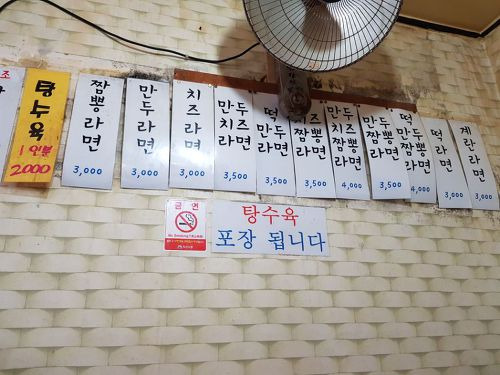 조
탕수육
1인분
2000
짬뽕라면
3,000
만두라면
3,000
치즈라면
3,000
만두치즈라면
3,500
떡만두라면
3,500
치즈짬뽕라면
3,500
만두치즈짬뽕라면
4,000
만두짬뽕라면
3,500
떡만두짬뽕라면
4,000
떡라면
3,000
계란라면
3,000
금연
No Smoking
탕수육
포장 됩니다